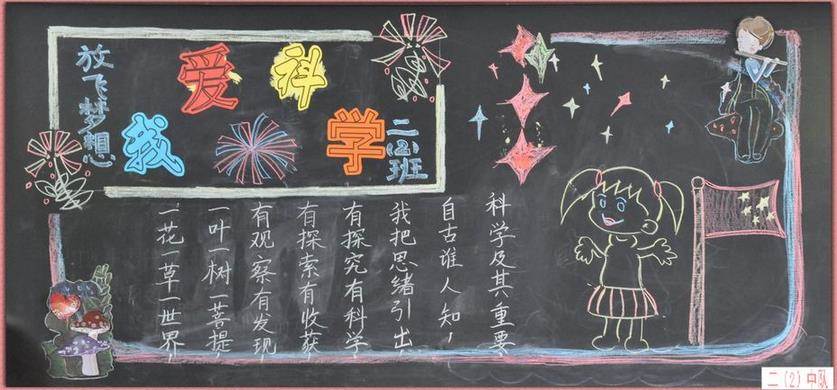 放飞梦想
我爱科学
二(2)班
科学及其重要
自古谁人知
我把思绪引出
有探究有科学
有探索有收获
有观察有发现
一叶一树一菩提
一花一草一世界